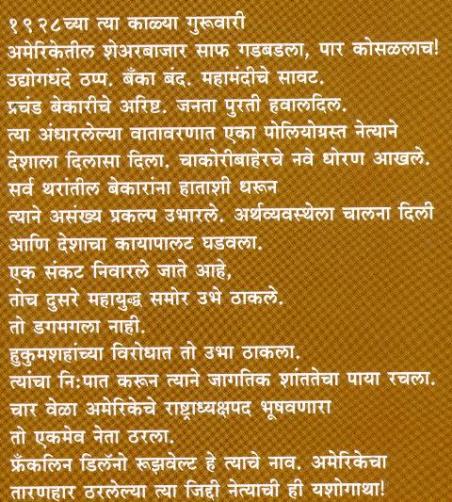 १९२८च्या त्या काळ्या गुरूवारी
अमेरिकेतील शेअरबाजार साफ गडबडला, पार कोसळलाच!
उद्योगधंदे ठप्प. बँका बंद. महामंदीचे सावट.
प्रचंड बेकारीचे अरिष्ट. जनता पुरती हवालदिल.
त्या अंधारलेल्या वातावरणात एका पोलियोग्रस्त नेत्याने
देशाला दिलासा दिला. चाकोरीबाहेरचे नवे धोरण आखले.
सर्व थरांतील बेकारांना हाताशी धरून
त्याने असंख्य प्रकल्प उभारले. अर्थव्यवस्थेला चालना दिली
आणि देशाचा कायापालट घडवला.
एक संकट निवारले जाते आहे,
तोच दुसरे महायुद्ध समोर उभे ठाकले.
तो डगमगला नाही.
हुकुमशहांच्या विरोधात तो उभा ठाकला.
त्यांचा नि:पात करून त्याने जागतिक शांततेचा पाया रचला.
चार वेळा अमेरिकेचे राष्ट्राध्यक्षपद भूषवणारा
तो एकमेव नेता ठरला.
फ्रँकलिन डिलॅनो रूझवेल्ट हे त्याचे नाव. अमेरिकेचा
तारणहार ठरलेल्या त्या जिद्दी नेत्याची ही यशोगाथा!